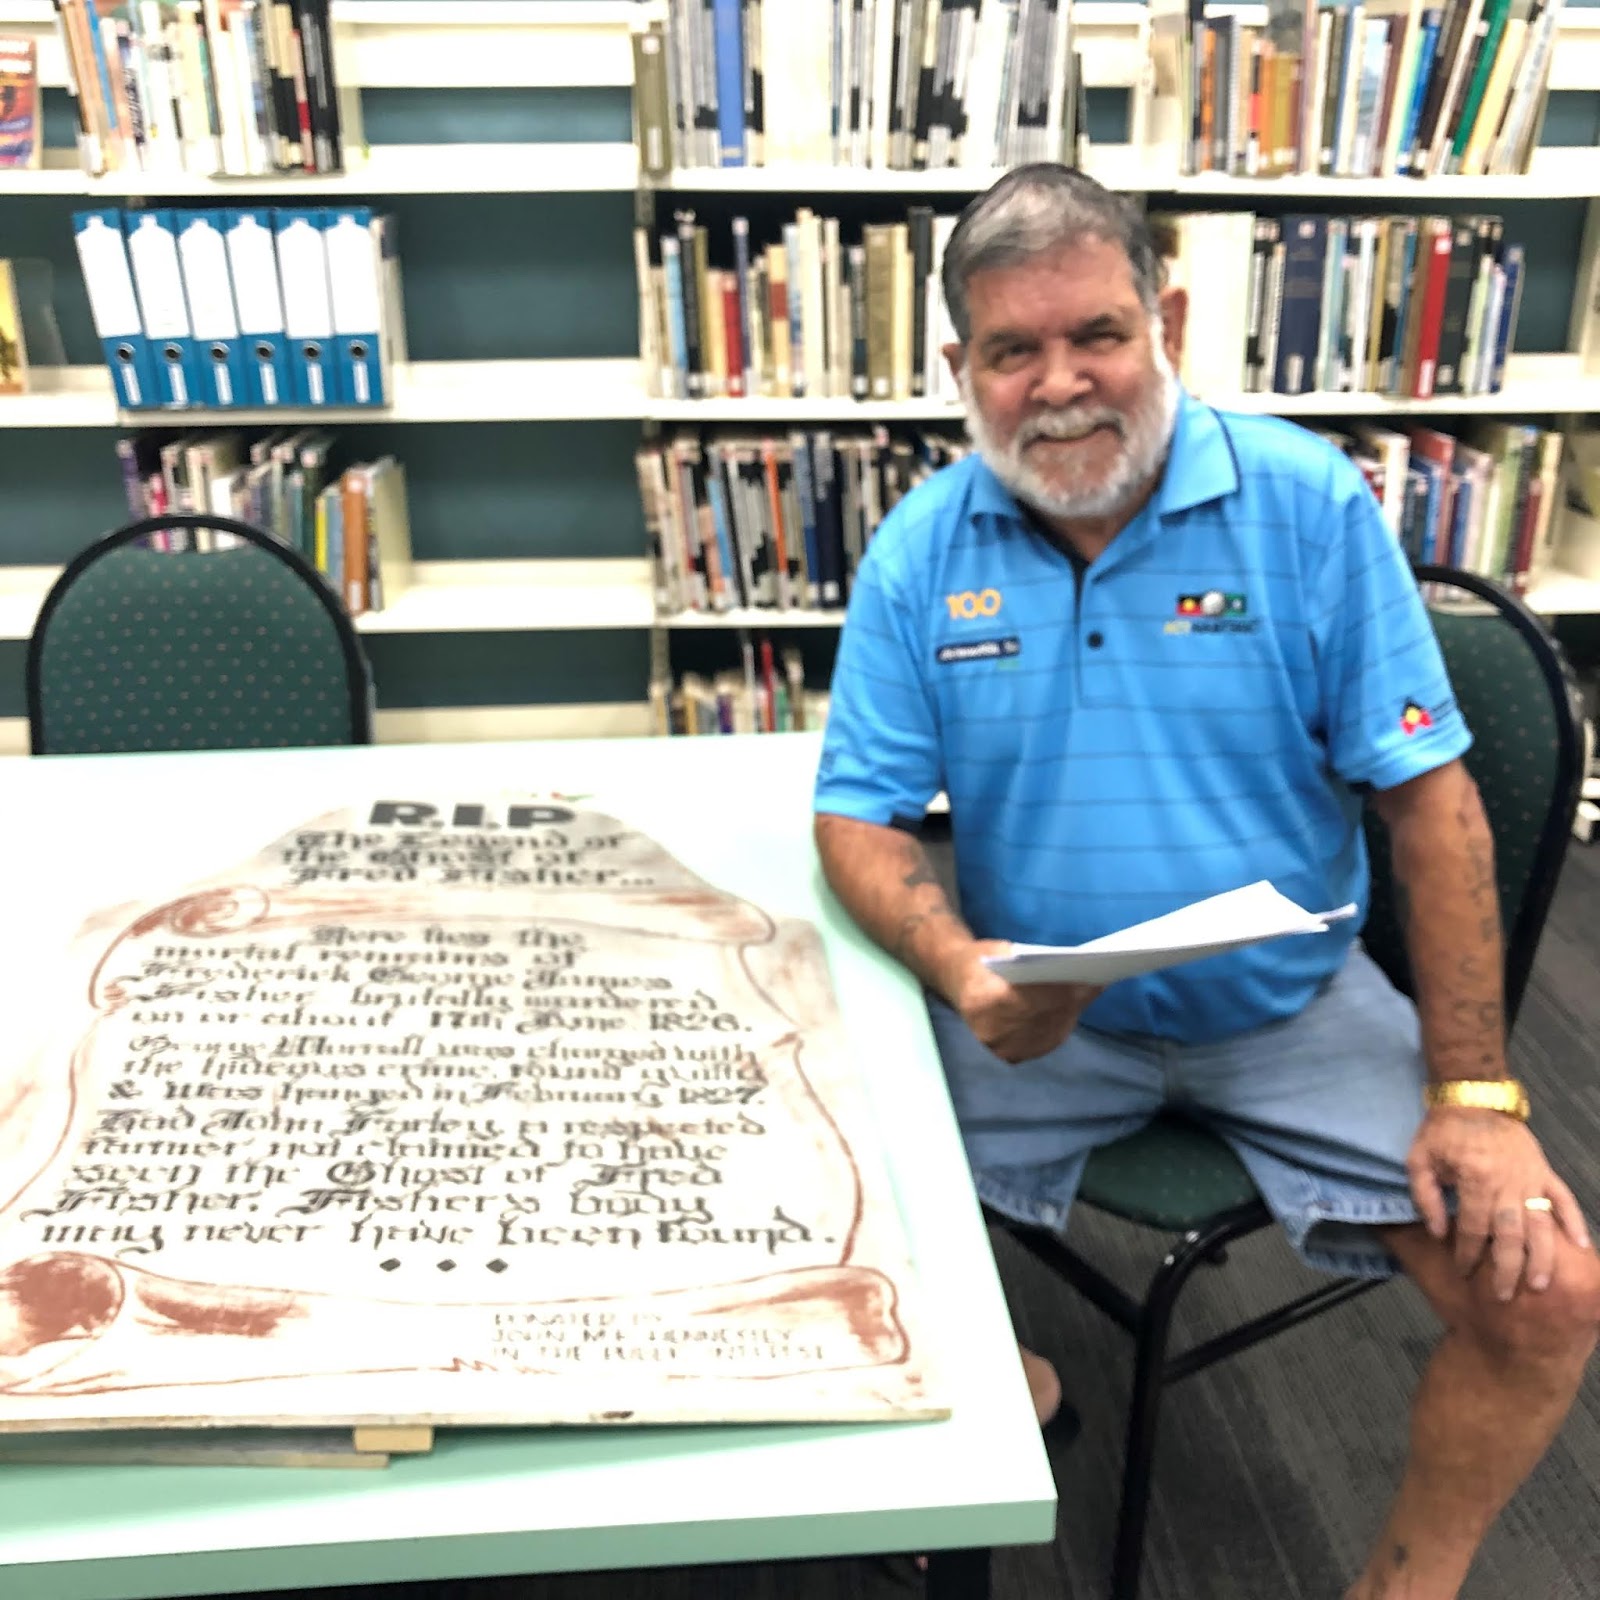 R.I.P
The Legend of
the Ghost of
Fred Fisher...
Here lies the
mortal remains of
Frederick George James
Fisher brutally murdered
on or about 17th June, 1826.
George Worrall was charged with
the hideous crime, found guilty
& was hanged in February, 1827.
Had John Farley, a respected
farmer, not claimed to have
seen the Ghost of Fred
Fisher, Fisher's body
may never have been found.
DONATED BY
JOHN M.F. HENNESSEY
IN THE PUBLIC INTEREST
100